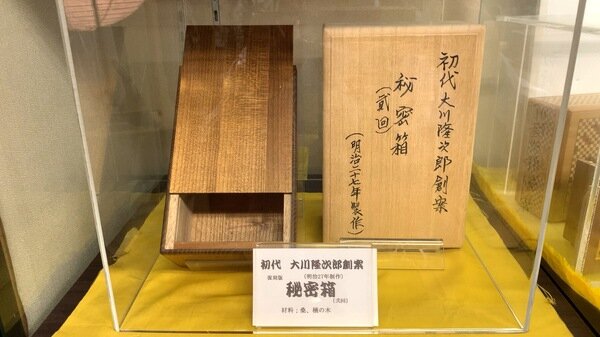 初代 大川隆次郎創案
秘密箱
(貮回)
(明治二十七年製作)
初代 大川隆次郎創案
復刻版 (明治27年製作)
秘密箱
(弐回)
材料；桑、楠の木